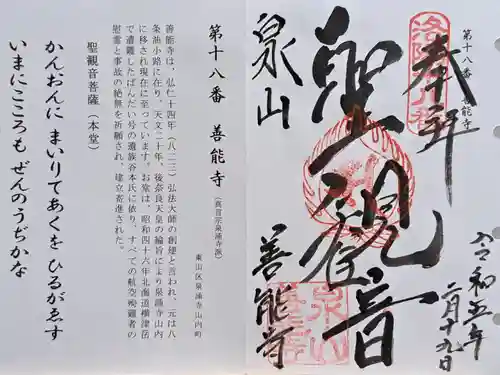 第十八番 善能寺
奉拝
聖観音
泉山
善能寺
令和五年
二月十九日
第十八番 善能寺
(真言宗泉涌寺派)
東山区泉涌寺山内町
善能寺は、弘仁十四年(八二三)弘法大師の創建と言われ、元は八
条油小路に在り、天文二十年、後奈良天皇の綸旨により泉涌寺山内
に移され現在に至っています。お堂は、昭和四十六年北海道横津岳
で遭難したばんだい号の遺族谷本氏に依り、すべての航空殉難者の
慰霊と事故の絶無を祈願され、建立寄進された。
聖観音菩薩(本堂)
かんおんに まいりてあくを ひるがゑす
いまにこころも ぜんのうぢかな